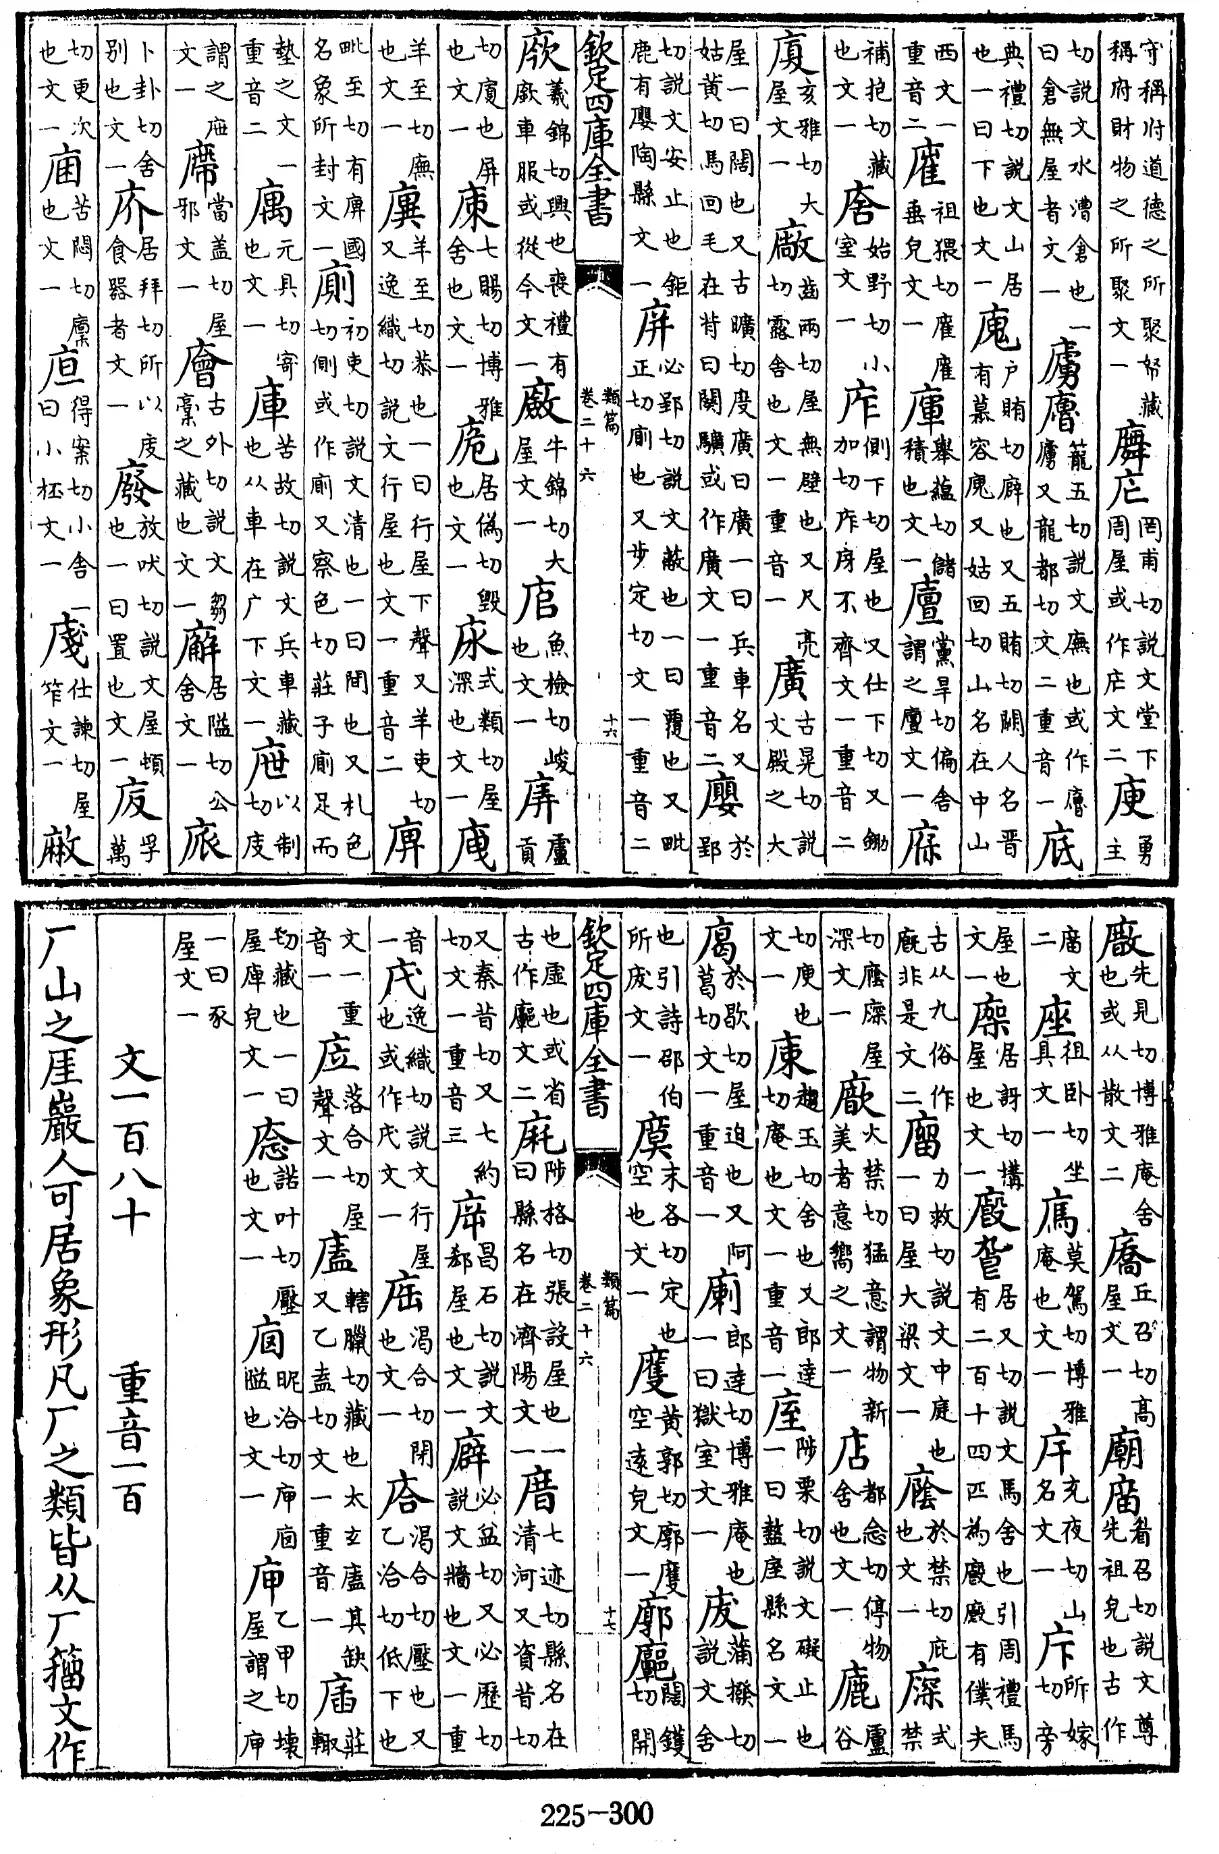 守稱府道德之所聚帑藏稱府財物之所聚文一 廡 罔甫切說文堂下周屋或作文二 庾 勇主
切說文水漕倉也一曰倉無屋者文一 㢚 籠五切說文廡也或作又龍都切文二重音一 底
典禮切說文山居也一曰下也文一 廆 戶賄切廦也又五賄切闕人名晉有慕容廆又姑回切山名在中山
西文一重音二 祖猥切垂皃文一 舉蘊切儲積也文一 黨旱切偏舍謂之文一
補抱切藏也文一 始野切小室文一 側下切屋也又仕下切又鋤加切不齊文一重音二
廈 亥雅切大屋文一 廠 齒兩切屋無壁也又尺亮切露舍也文一重音一 廣 古晃切說文殿之大
屋一曰闊也又古曠切度廣曰廣一曰兵車名又姑黃切馬回毛在背曰闋驥或作廣文一重音二 廮 於郢
切說文安止也鉅鹿有廮陶縣文一 屏 必郢切說文蔽也一曰覆也又毗正切廁也又步定切文一重音二
欽定四庫全書 類篇 卷二十六 十六
廞 羲錦切興也喪禮有廞車服或從今文一 牛錦切大屋文一 魚檢切峻也文一 盧貢
切廎也屏也文一 七賜切博雅舍也文一 居偽切毀也文一 式類切屋深也文一
羊至切廡也文一 廙 羊至切恭也一曰行屋下聲又羊吏切又逸織切說文行屋也文一重音二 庳
毗至切有庳國名象所封文一 廁 初吏切說文清也一曰間也又札色切側或作廁又察色切莊子廁足而
墊之文一重音二 元具切寄也文一 庫 苦故切說文兵車藏也从車在广下文一 以制切庋
謂之文一 廗 當蓋切屋邪文一 廥 古外切說文芻藳之藏也文一 廨 居隘切公舍文一
卜卦切舍別也文一 庎 居拜切所以庋食器者文一 廢 放吠切說文屋頓也一曰置也文一 孚萬
切更次也文一 苦悶切廩也文一 得案切小舍一曰小柸文一 仕諫切屋笮文一
先見切博雅庵舍也或从散文二 丘召切高屋文一 廟庿 眉召切說文尊先祖皃也古作
庿文二 座 祖臥切坐具文一 莫駕切博雅庵也文一 充夜切山名文一 所嫁切旁
屋也文一 居訝切構屋也文一 廄 居又切說文馬舍也引周禮馬有二百十四匹為廄廄有僕夫
古从九俗作廐非是文二 廇 力救切說文中庭也一曰屋大梁文一 廕 於禁切庇也文一 式禁
切廕屋深文一 廞 火禁切猛意謂物新美者意嚮之文一 店 都念切停物舍也文一 廘 盧谷
切庾也文一 趨玉切舍也又郎達切庵也文一重音一 庢 陟栗切說文礙止也一曰盩庢縣名文一
於歇切屋迫也又阿葛切文一重音一 郎達切博雅庵也一曰獄室文一 废 蒲撥切說文舍
也引詩邵伯所废文一 末各切定也空也文一 黃郭切廓空遠皃文一 廓 闊鑊切開
欽定四庫全書 類篇 卷二十六 十七
也虛也或省古作文二 陟格切張設屋也一曰縣名在濟陽文一 厝 七迹切縣名在清河又資昔切
又秦昔切又七約切文一重音三 昌石切說文郄屋也文一 廦 必益切又必歷切說文牆也文一重
音一 逸織切說文行屋也或作文一 渴合切閉也文一 渴合切壓也又乙洽切低下也
文一重音一 落合切屋聲文一 轄臘切藏也太玄其缺又乙盍切文一重音一 莊輒
切藏也一曰屋庳皃文一 諾叶切壓也文一 昵洽切庘隘也文一 庘 乙甲切壞屋謂之庘
一曰豕屋文一
文一百八十 重音一百
厂山之厓巖人可居象形凡厂之類皆从厂籀文作
225-300